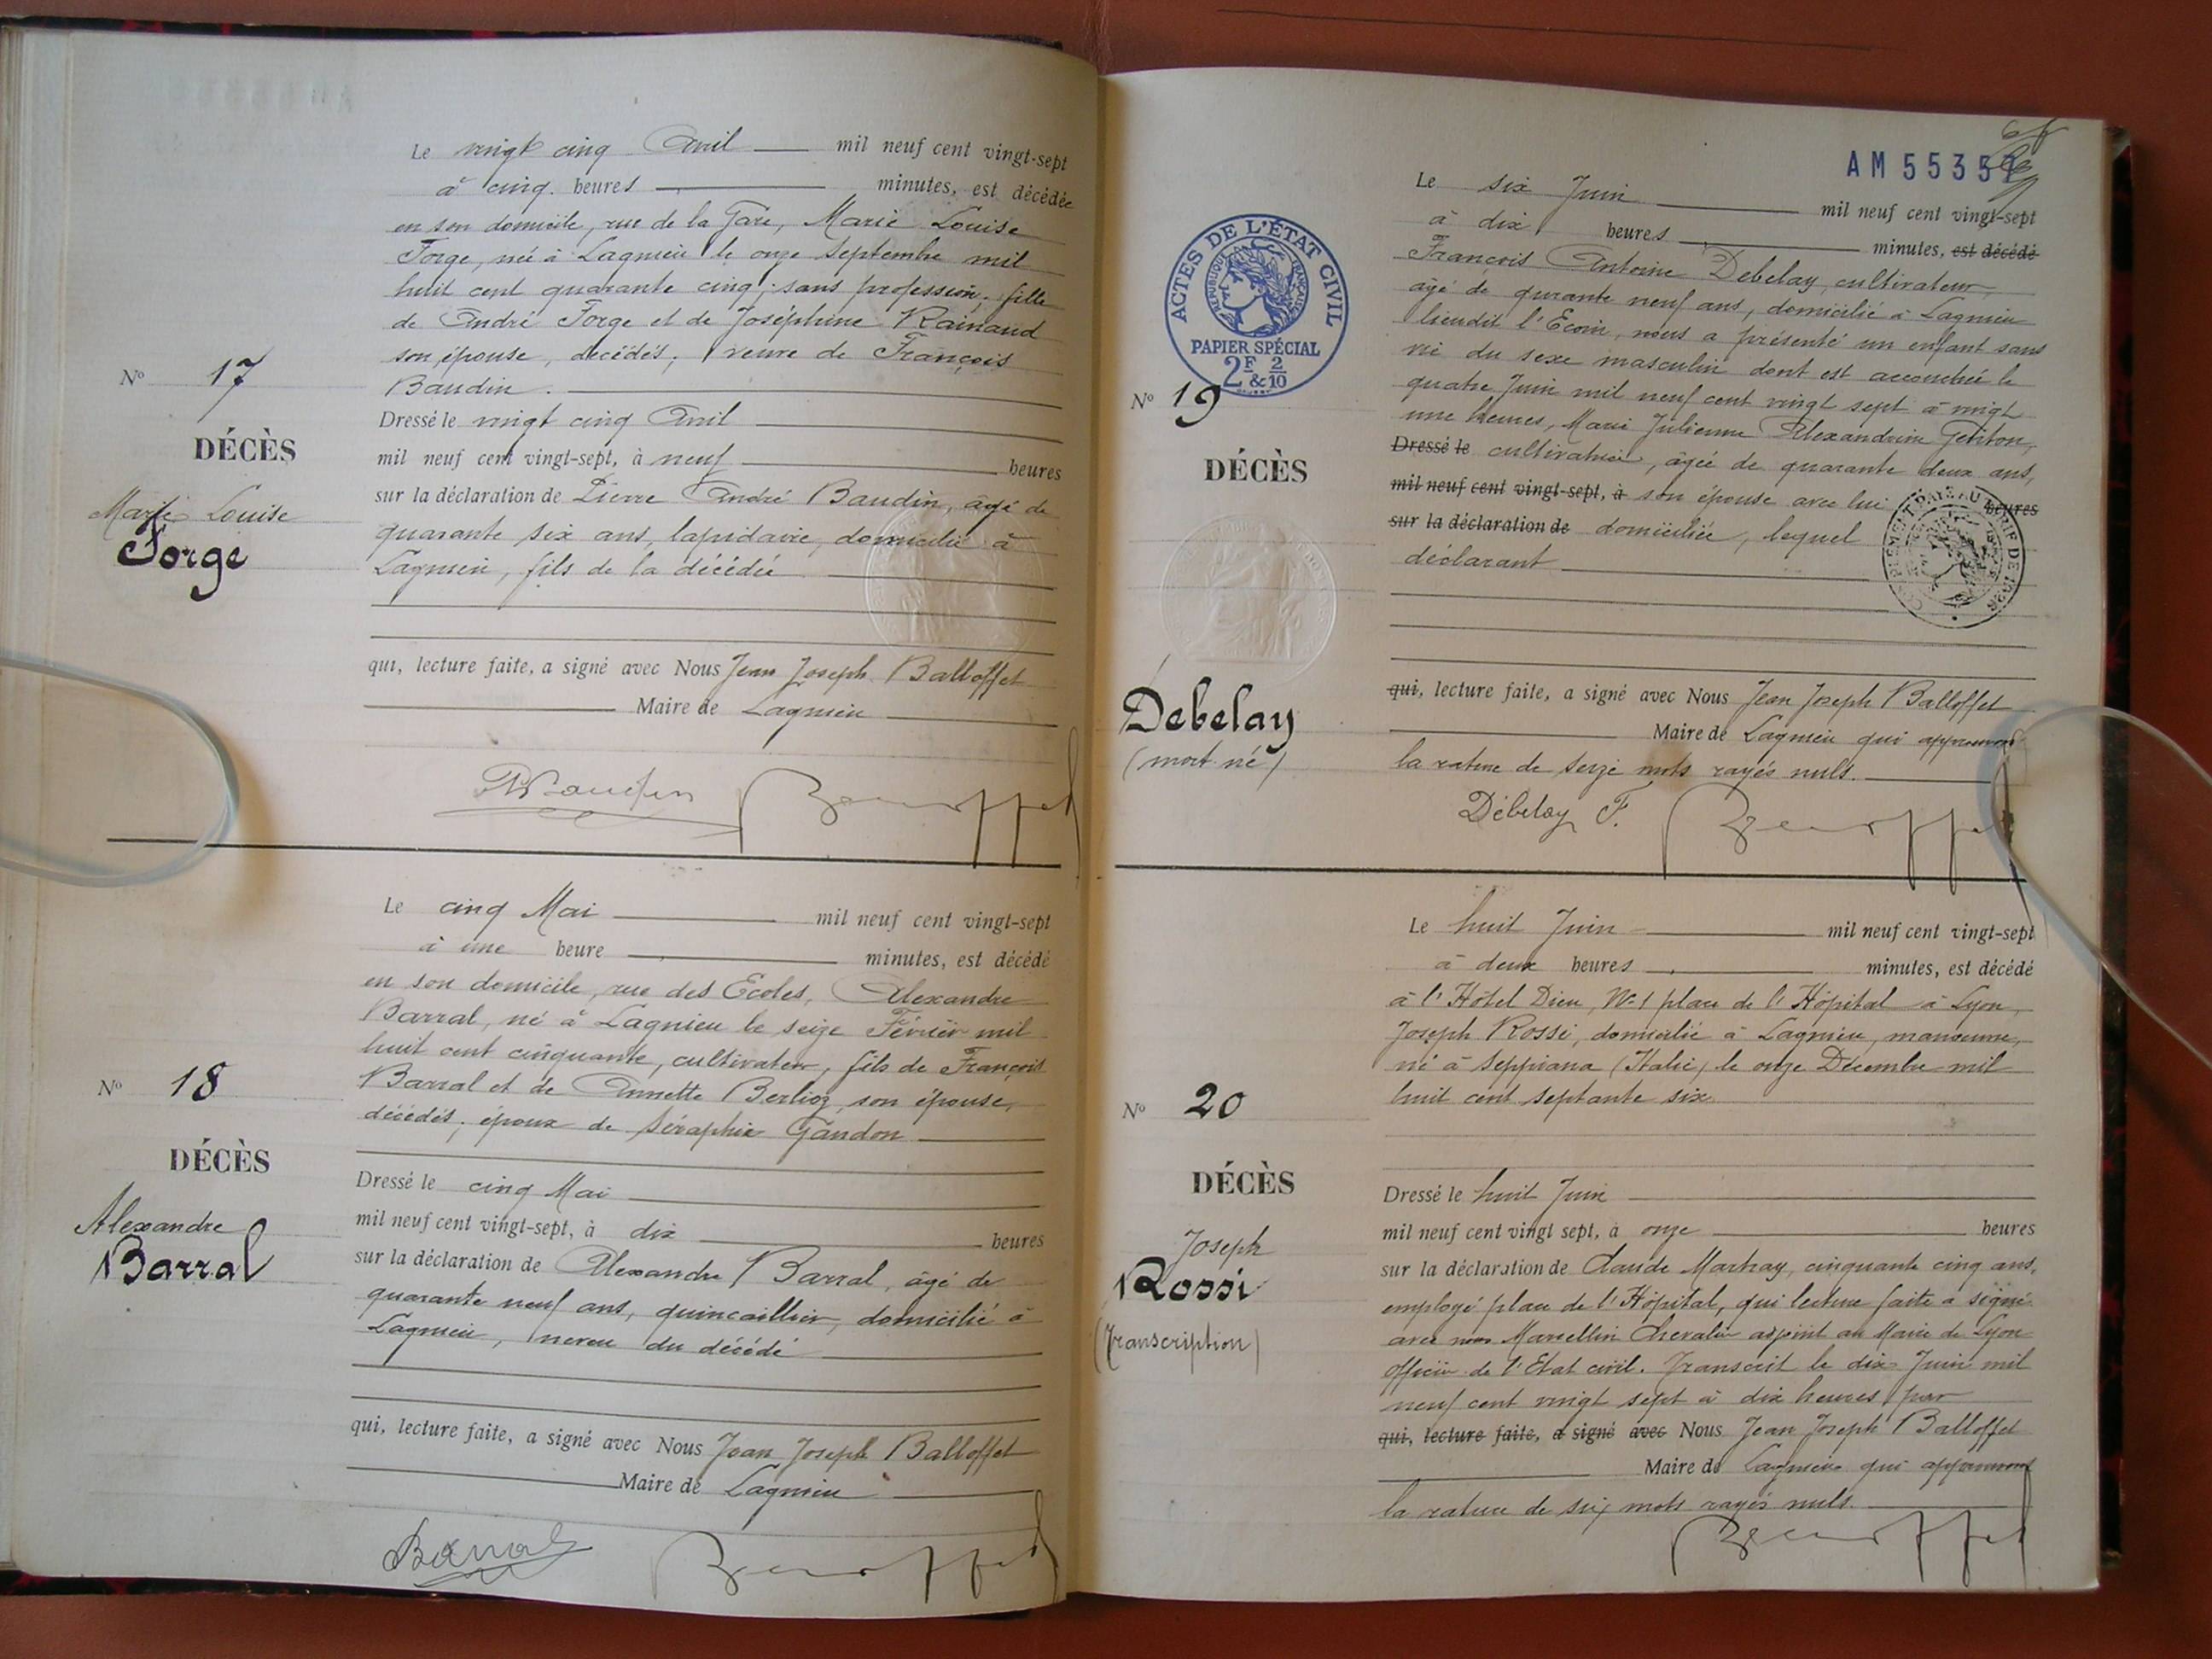 Le vingt cinq Avril mil neuf cent vingt-sept
à cinq heures minutes, est décédée
en son domicile, rue de la Gare, Marie Louise
Forge, née à Lagnieu le onze Septembre mil
huit cent quarante cinq; sans profession; fille
de André Forge et de Joséphine Rainaud
son épouse, décédés; veuve de François
Baudin.
Nº 17
DÉCÈS
Marie Louise
Forge
Dressé le vingt cinq Avril
mil neuf cent vingt-sept, à neuf heures
sur la déclaration de Pierre André Baudin, âgé de
quarante six ans, lapidaire, domicilié à
Lagnieu, fils de la décédée
qui, lecture faite, a signé avec Nous Jean Joseph Balloffet
Maire de Lagnieu
Baudin Balloffet
Le cinq Mai mil neuf cent vingt-sept
à une heure minutes, est décédé
en son domicile, rue des Ecoles, Alexandre
Barral, né à Lagnieu le seize Février mil
huit cent cinquante, cultivateur, fils de François
Barral et de Annette Berlioz, son épouse,
décédés; époux de Séraphie Gandon
Nº 18
DÉCÈS
Alexandre
Barral
Dressé le cinq Mai
mil neuf cent vingt-sept, à dix heures
sur la déclaration de Alexandre Barral, âgé de
quarante neuf ans, quincaillier, domicilié à
Lagnieu, neveu du décédé
qui, lecture faite, a signé avec Nous Jean Joseph Balloffet
Maire de Lagnieu
Barral Balloffet
AM 5535
ACTES DE L'ÉTAT CIVIL
RÉPUBLIQUE FRANÇAISE
PAPIER SPÉCIAL
2F & 2/10
Le six Juin mil neuf cent vingt-sept
à dix heures minutes, est décédé
François Antoine Debelay, cultivateur,
âgé de qurante neuf ans, domicilié à Lagnieu
lieudit l'Ecoin, nous a présenté un enfant sans
vie du sexe masculin dont est accouchée le
quatre Juin mil neuf cent vingt sept à vingt
une heures, Marie Julienne Alexandrine
Dressé le cultivatrice, âgée de quarante deux ans,
mil neuf cent vingt-sept, à son épouse avec lui heures
sur la déclaration de domiciliée, lequel
déclarant
Nº 19
DÉCÈS
Debelay
(mort né)
qui, lecture faite, a signé avec Nous Jean Joseph Balloffet
Maire de Lagnieu qui approuvons
la rature de seize mots rayés nuls.
Débelay F. Balloffet
Le huit Juin mil neuf cent vingt-sept
à deux heures minutes, est décédé
à l'Hôtel Dieu, Nº 1 place de l'Hôpital à Lyon,
Joseph Rossi, domicilié à Lagnieu, manoeuvre,
né à Seppiana (Italie) le onze Décembre mil
huit cent septante six
Nº 20
DÉCÈS
Joseph
Rossi
(Transcription)
Dressé le huit Juin
mil neuf cent vingt sept, à onze heures
sur la déclaration de Claude Martray, cinquante cinq ans,
employé place de l'Hôpital, qui lecture faite a signé
avec nous Marcellin Chevalier adjoint au Maire de Lyon
Officier de l'Etat civil. Transcrit le dix Juin mil
neuf cent vingt sept à dix heures par
qui, lecture faite, a signé avec Nous Jean Joseph Balloffet
Maire de Lagnieu qui approuvons
la rature de six mots rayés nuls.
Balloffet